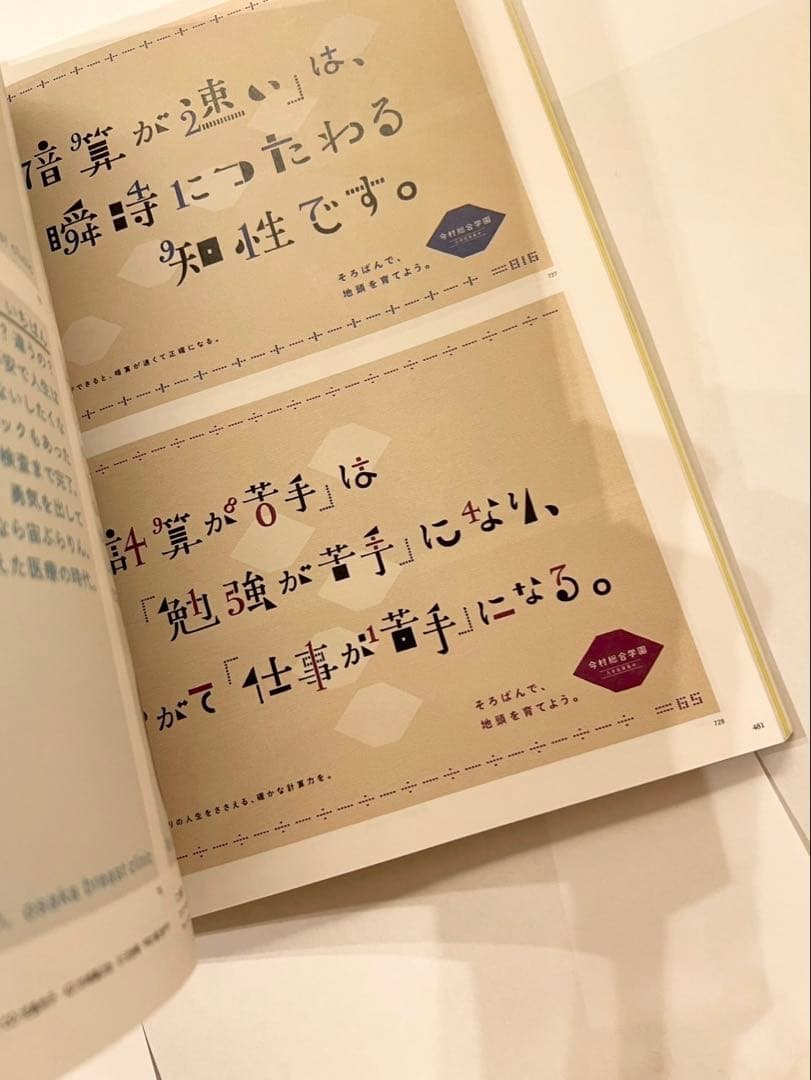 暗算が速い」は、
瞬時につたわる
知性です。
今村総合学園
そろばんで、
地頭を育てよう。
=816
727
できると、暗算が速くて正確になる。
計算が苦手」は
「勉強が苦手」になり、
がて「仕事が苦手」になる。
今村総合学園
そろばんで、
地頭を育てよう。
=65
728
481
りの人生をささえる、確かな計算力を。
いちばん
？違うの？
安で人生は
ないしたくな
ックもあった
検査まで完了。
勇気を出して
なら宙ぶらりん。
えた医療の時代。